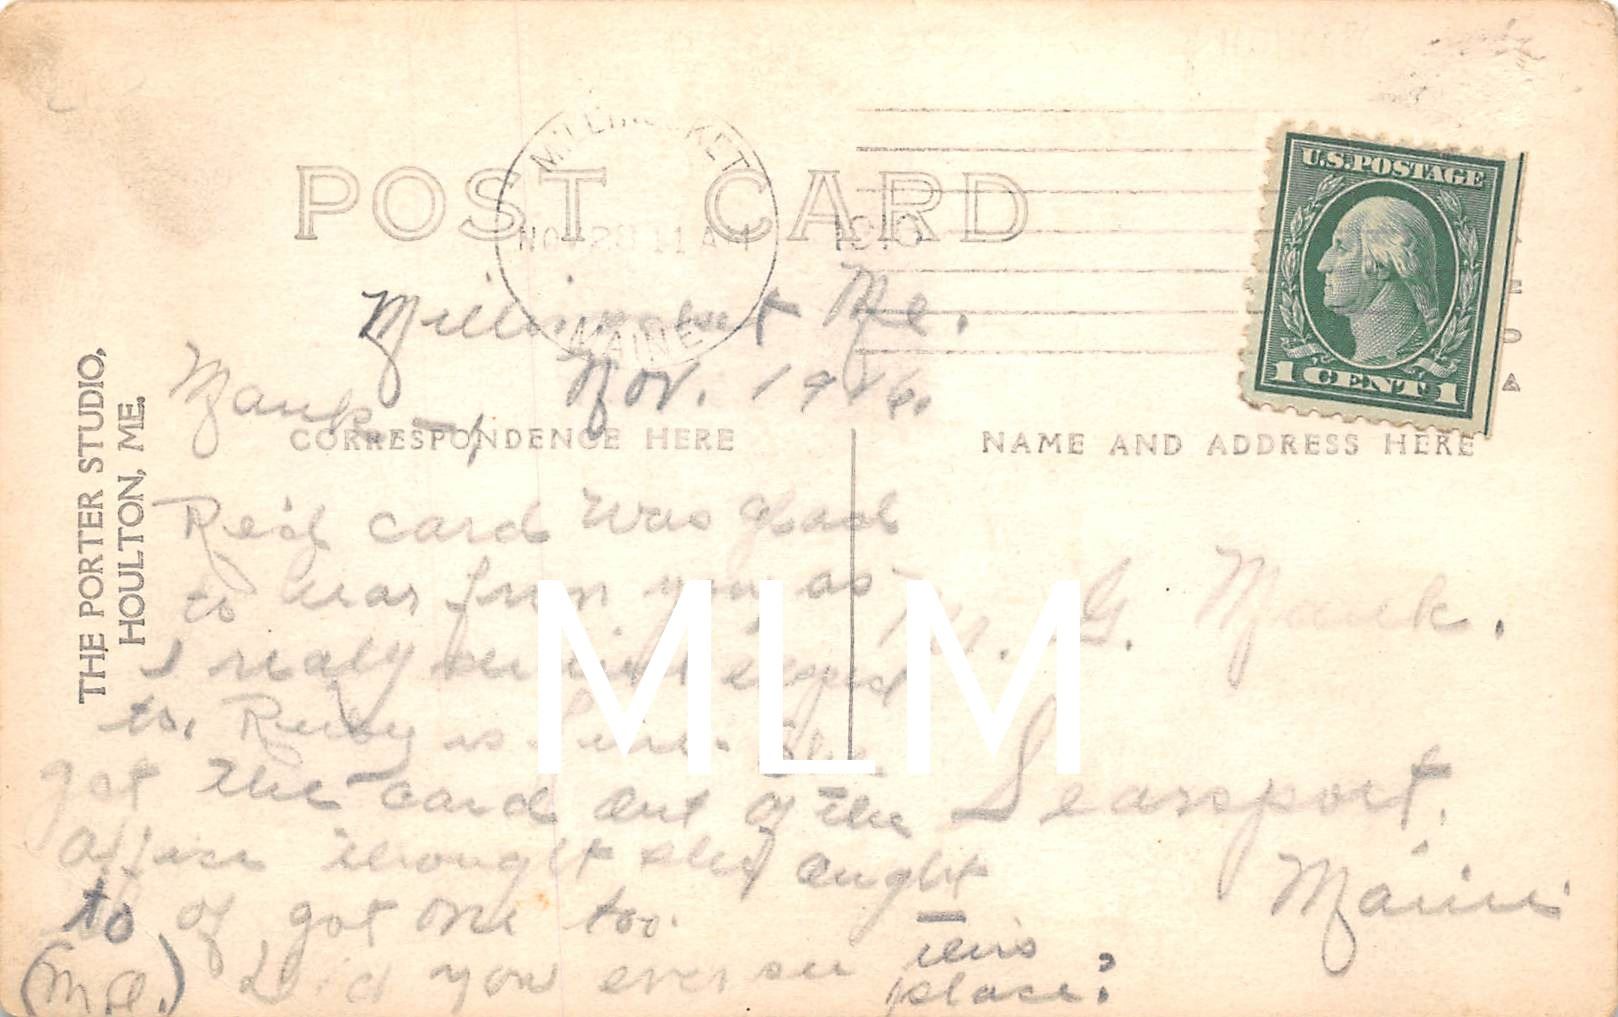 POST CARD
MILLINOCKET
NOV 28 11 A M 1916
MAINE
THE PORTER STUDIO,
HOULTON, ME.
CORRESPONDENCE HERE
NAME AND ADDRESS HERE
U.S. POSTAGE
1 CENT 1
Me.
Nov. 1916.
Mank —,
Re'd card was glad
to hear from you as
I realy
to. Ruby is here. She
got the card out of the
office thought she aught
to of got one too.
(M.A.) Did you ever see this
place?
M. G. Mank.
Searsport.
Maine
MLM